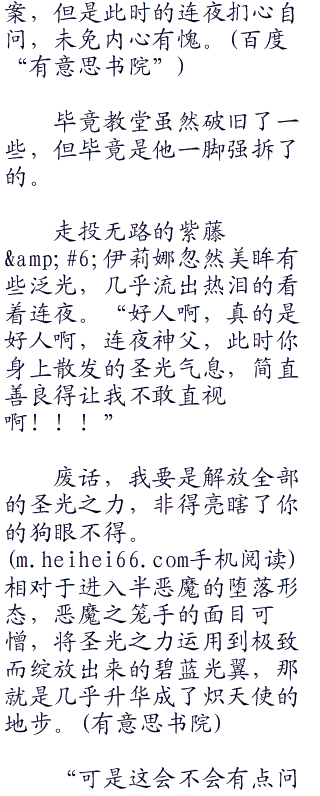 案，但是此时的连夜扪心自
问，未免内心有愧。(百度
“有意思书院”)
毕竟教堂虽然破旧了一
些，但毕竟是他一脚强拆了
的。
走投无路的紫藤
&amp;#6;伊莉娜忽然美眸有
些泛光，几乎流出热泪的看
着连夜。“好人啊，真的是
好人啊，连夜神父，此时你
身上散发的圣光气息，简直
善良得让我不敢直视
啊！！！”
废话，我要是解放全部
的圣光之力，非得亮瞎了你
的狗眼不得。
(m.heihei66.com手机阅读)
相对于进入半恶魔的堕落形
态，恶魔之笼手的面目可
憎，将圣光之力运用到极致
而绽放出来的碧蓝光翼，那
就是几乎升华成了炽天使的
地步。(有意思书院)
“可是这会不会有点问